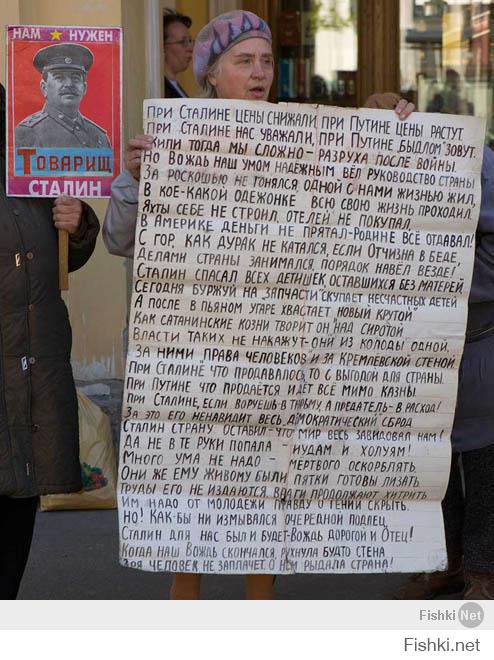 НАМ НУЖЕН
ТОВАРИЩ
СТАЛИН
ПРИ СТАЛИНЕ ЦЕНЫ СНИЖАЛИ, ПРИ ПУТИНЕ ЦЕНЫ РАСТУТ
ПРИ СТАЛИНЕ НАС УВАЖАЛИ, ПРИ ПУТИНЕ "БЫДЛОМ" ЗОВУТ.
ЖИЛИ ТОГДА МЫ СЛОЖНО - РАЗРУХА ПОСЛЕ ВОЙНЫ.
НО ВОЖДЬ НАШ УМОМ НАДЁЖНЫМ ВЁЛ РУКОВОДСТВО СТРАНЫ
ЗА РОСКОШЬЮ НЕ ГОНЯЛСЯ, ОДНОЙ С НАМИ ЖИЗНЬЮ ЖИЛ,
В КОЕ-КАКОЙ ОДЕЖОНКЕ ВСЮ СВОЮ ЖИЗНЬ ПРОХОДИЛ.
ЯХТЫ СЕБЕ НЕ СТРОИЛ, ОТЕЛЕЙ НЕ ПОКУПАЛ,
В АМЕРИКЕ ДЕНЬГИ НЕ ПРЯТАЛ-РОДИНЕ ВСЁ ОТДАВАЛ!
С ГОР, КАК ДУРАК НЕ КАТАЛСЯ, ЕСЛИ ОТЧИЗНА В БЕДЕ,
ДЕЛАМИ СТРАНЫ ЗАНИМАЛСЯ, ПОРЯДОК НАВЁЛ ВЕЗДЕ!
СТАЛИН СПАСАЛ ВСЕХ ДЕТИШЕК, ОСТАВШИХСЯ БЕЗ МАТЕРЕЙ,
СЕГОДНЯ БУРЖУЙ НА "ЗАПЧАСТИ" СКУПАЕТ НЕСЧАСТНЫХ ДЕТЕЙ
А ПОСЛЕ В ПЬЯНОМ УГАРЕ ХВАСТАЕТ "НОВЫЙ КРУТОЙ"
КАК САТАНИНСКИЕ КОЗНИ ТВОРИТ ОН НАД СИРОТОЙ
ВЛАСТИ ТАКИХ НЕ НАКАЖУТ-ОНИ ИЗ КОЛОДЫ ОДНОЙ,
ЗА НИМИ "ПРАВА ЧЕЛОВЕКОВ" И ЗА КРЕМЛЕВСКОЙ СТЕНОЙ.
ПРИ СТАЛИНЕ ЧТО ПРОДАВАЛОСЬ, ТО С ВЫГОДОЙ ДЛЯ СТРАНЫ.
ПРИ ПУТИНЕ ЧТО ПРОДАЁТСЯ ИДЁТ ВСЁ МИМО КАЗНЫ.
ПРИ СТАЛИНЕ, ЕСЛИ ВОРУЕШЬ В ТЮРЬМУ, А ПРЕДАТЕЛЬ - В РАСХОД!
ЗА ЭТО ЕГО НЕНАВИДИТ ВЕСЬ ДЕМОКРАТИЧЕСКИЙ СБРОД
СТАЛИН СТРАНУ ОСТАВИЛ-ЧТО МИР ВЕСЬ ЗАВИДОВАЛ НАМ!
ДА НЕ В ТЕ РУКИ ПОПАЛА ИУДАМ И ХОЛУЯМ!
МНОГО УМА НЕ НАДО - МЕРТВОГО ОСКОРБЛЯТЬ.
ОНИ ЖЕ ЕМУ ЖИВОМУ БЫЛИ ПЯТКИ ГОТОВЫ ЛИЗАТЬ
ТРУДЫ ЕГО НЕ ИЗДАЮТСЯ, ВРАГИ ПРОДОЛЖАЮТ ХИТРИТЬ
ИМ НАДО ОТ МОЛОДЁЖИ ПРАВДУ О ГЕНИИ СКРЫТЬ.
НО! КАК-БЫ НИ ИЗМЫВАЛСЯ ОЧЕРЕДНОЙ ПОДЛЕЦ
СТАЛИН ДЛЯ НАС БЫЛ И БУДЕТ-ВОЖДЬ ДОРОГОЙ И ОТЕЦ!
КОГДА НАШ ВОЖДЬ СКОНЧАЛСЯ, РУХНУЛА БУДТО СТЕНА
ЗРЯ ЧЕЛОВЕК НЕ ЗАПЛАЧЕТ О НЁМ РЫДАЛА СТРАНА!
Fishki Net
Fishki.net